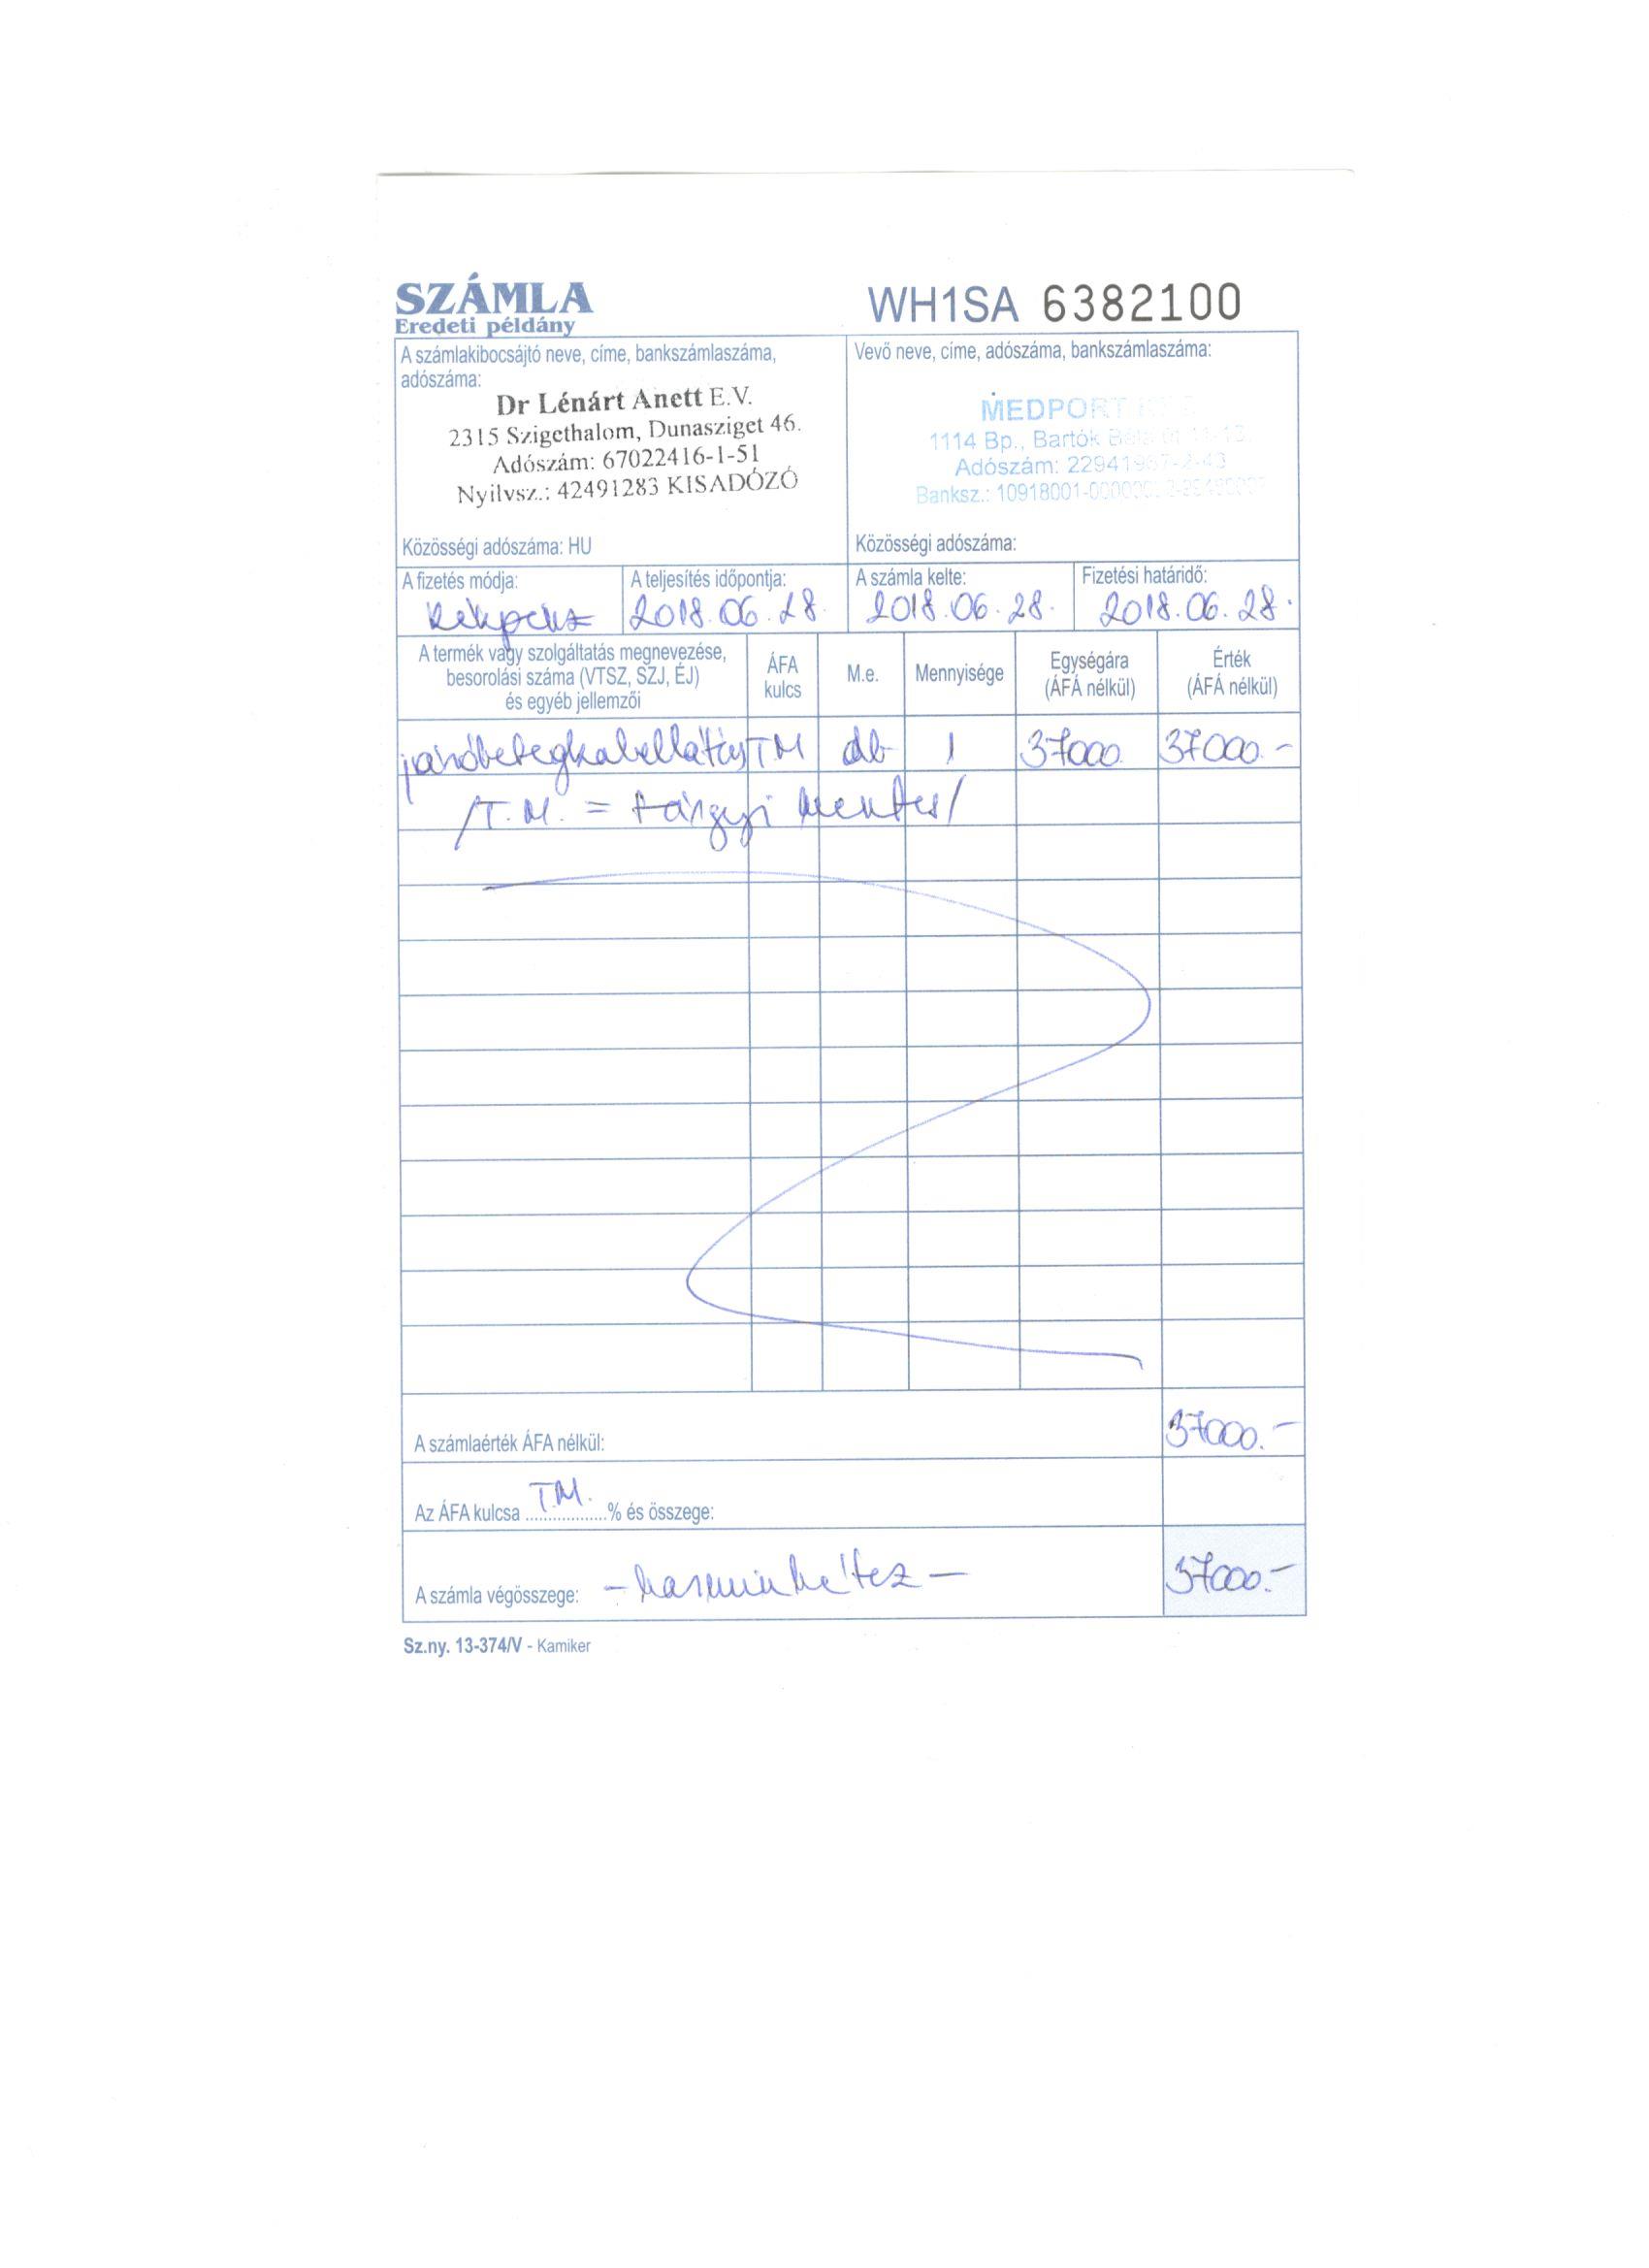 SZÁMLA
Eredeti példány
WH1SA 6382100
A számlakibocsájtó neve, címe, bankszámlaszáma,
adószáma:
Dr Lénárt Anett E.V.
2315 Szigethalom, Dunasziget 46.
Adószám: 67022416-1-51
Nyilvsz.: 42491283 KISADÓZÓ
Közösségi adószáma: HU
Vevő neve, címe, adószáma, bankszámlaszáma:
MEDPORT
1114 Bp., Bartók Béla
Adószám:
Banksz.:
Közösségi adószáma:
A fizetés módja:
készpénz
A teljesítés időpontja:
2018.06.28.
A számla kelte:
2018.06.28.
Fizetési határidő:
2018.06.28.
A termék vagy szolgáltatás megnevezése,
besorolási száma (VTSZ, SZJ, ÉJ)
és egyéb jellemzői
ÁFA
kulcs
M.e.
Mennyisége
Egységára
(ÁFÁ nélkül)
Érték
(ÁFÁ nélkül)
járóbetegellátás TM db 1 37000 37000.-
/T.M. = tárgyi mentes/
A számlaérték ÁFA nélkül: 37000.-
Az ÁFA kulcsa T.M. % és összege:
A számla végösszege: - harminchétez - 37000.-
Sz.ny. 13-374/V - Kamiker